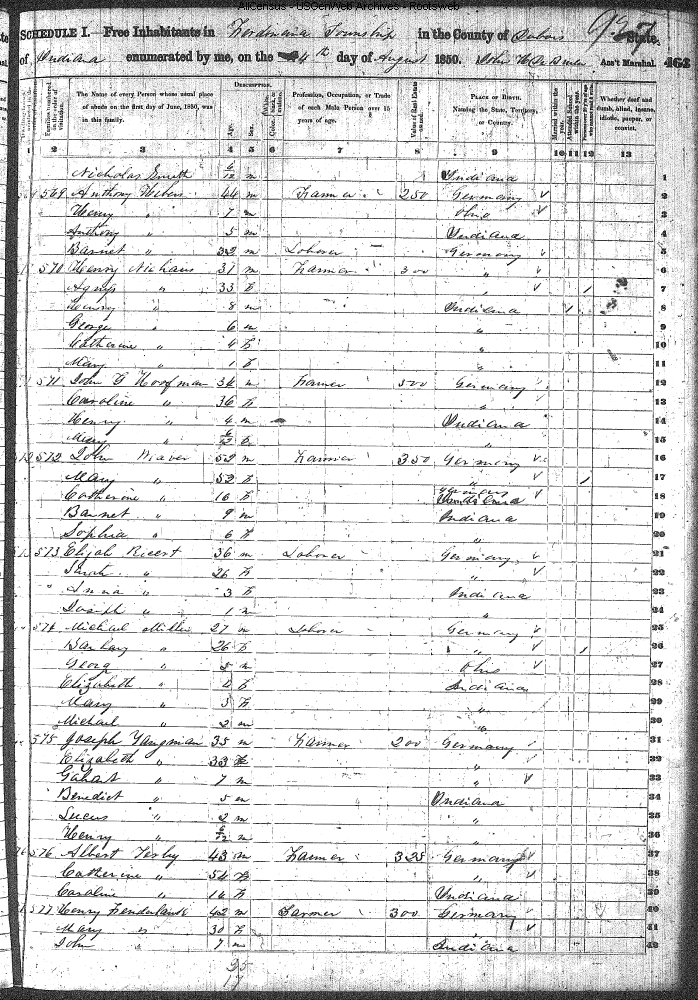 AllCensus - USGenWeb Archives - Rootsweb
SCHEDULE I.—Free Inhabitants in Ferdinand Township in the County of Dubois State
of Indiana enumerated by me, on the 4th day of August 1850. Ass't Marshal. 463
DESCRIPTION.
The Name of every Person whose usual place of abode on the first day of June, 1850, was in this family.
Age. Sex. Color
Profession, Occupation, or Trade of each Male Person over 15 years of age.
Value of Real Estate owned.
PLACE OF BIRTH. Naming the State, Territory, or Country.
Married within the year.
Attended School within the year.
Whether deaf and dumb, blind, insane, idiotic, pauper, or convict.
1 2 3 4 5 6 7 8 9 10 11 12 13
Nicholas 6/12 m Indiana 1
569 Anthony 44 m Farmer 250 Germany 2
Henry " 7 m Ohio 3
Anthony " 5 m Indiana 4
Barnet " 32 m Laborer Germany 5
570 Henry Niehaus 31 m Farmer 300 " 6
Agnes " 33 F " 7
Henry " 8 m Indiana 8
George " 6 m " 9
Catherine " 4 F " 10
Mary " 1 F " 11
571 John G Hoofman 36 m Farmer 500 Germany 12
Caroline " 36 F " 13
Henry " 4 m Indiana 14
Mary " 6/12 F " 15
572 John Weaver 52 m Farmer 350 Germany 16
Mary " 52 F " 17
Catherine " 16 F Germany 18
Barnet " 9 m Indiana 19
Sophia " 6 F " 20
573 Elijah 36 m Laborer Germany 21
Sarah " 26 F " 22
Anna " 3 F Indiana 23
Joseph " 1 m " 24
574 Michael Miller 27 m Laborer Germany 25
Barbary " 26 F " 26
Georg " 5 m Ohio 27
Elizabeth " 4 F Indiana 28
Mary " 3 F " 29
Michael " 2 m " 30
575 Joseph Yangman 35 m Farmer 200 Germany 31
Elizabeth " 33 F " 32
" 7 m " 33
Benedict " 5 m Indiana 34
Lucus " 2 m " 35
Henry " m " 36
576 Albert 43 m Farmer 325 Germany 37
Catherine " 54 F " 38
Caroline " 14 F Indiana 39
577 Henry 42 m Farmer 300 Germany 40
Mary " 30 F " 41
John 7 m Indiana 42